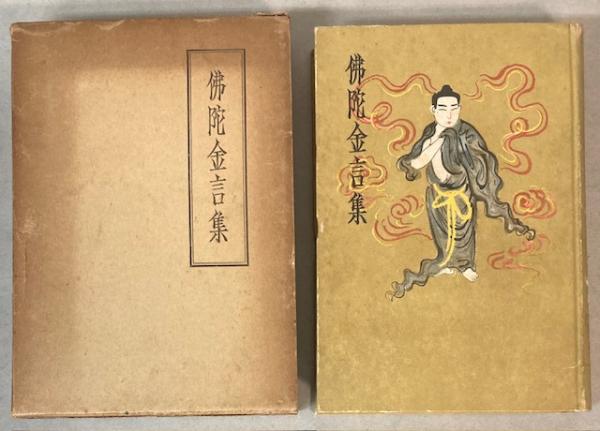 佛陀金言集
佛陀金言集